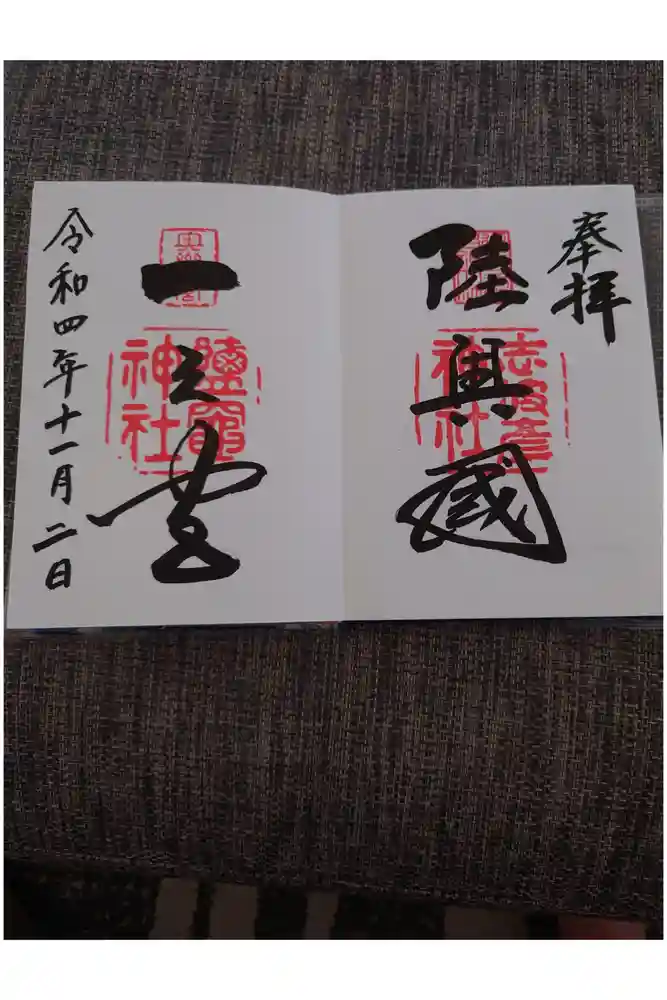 奉拝
陸奥國
志波彦神社
一之宮
鹽竈神社
令和四年十一月二日